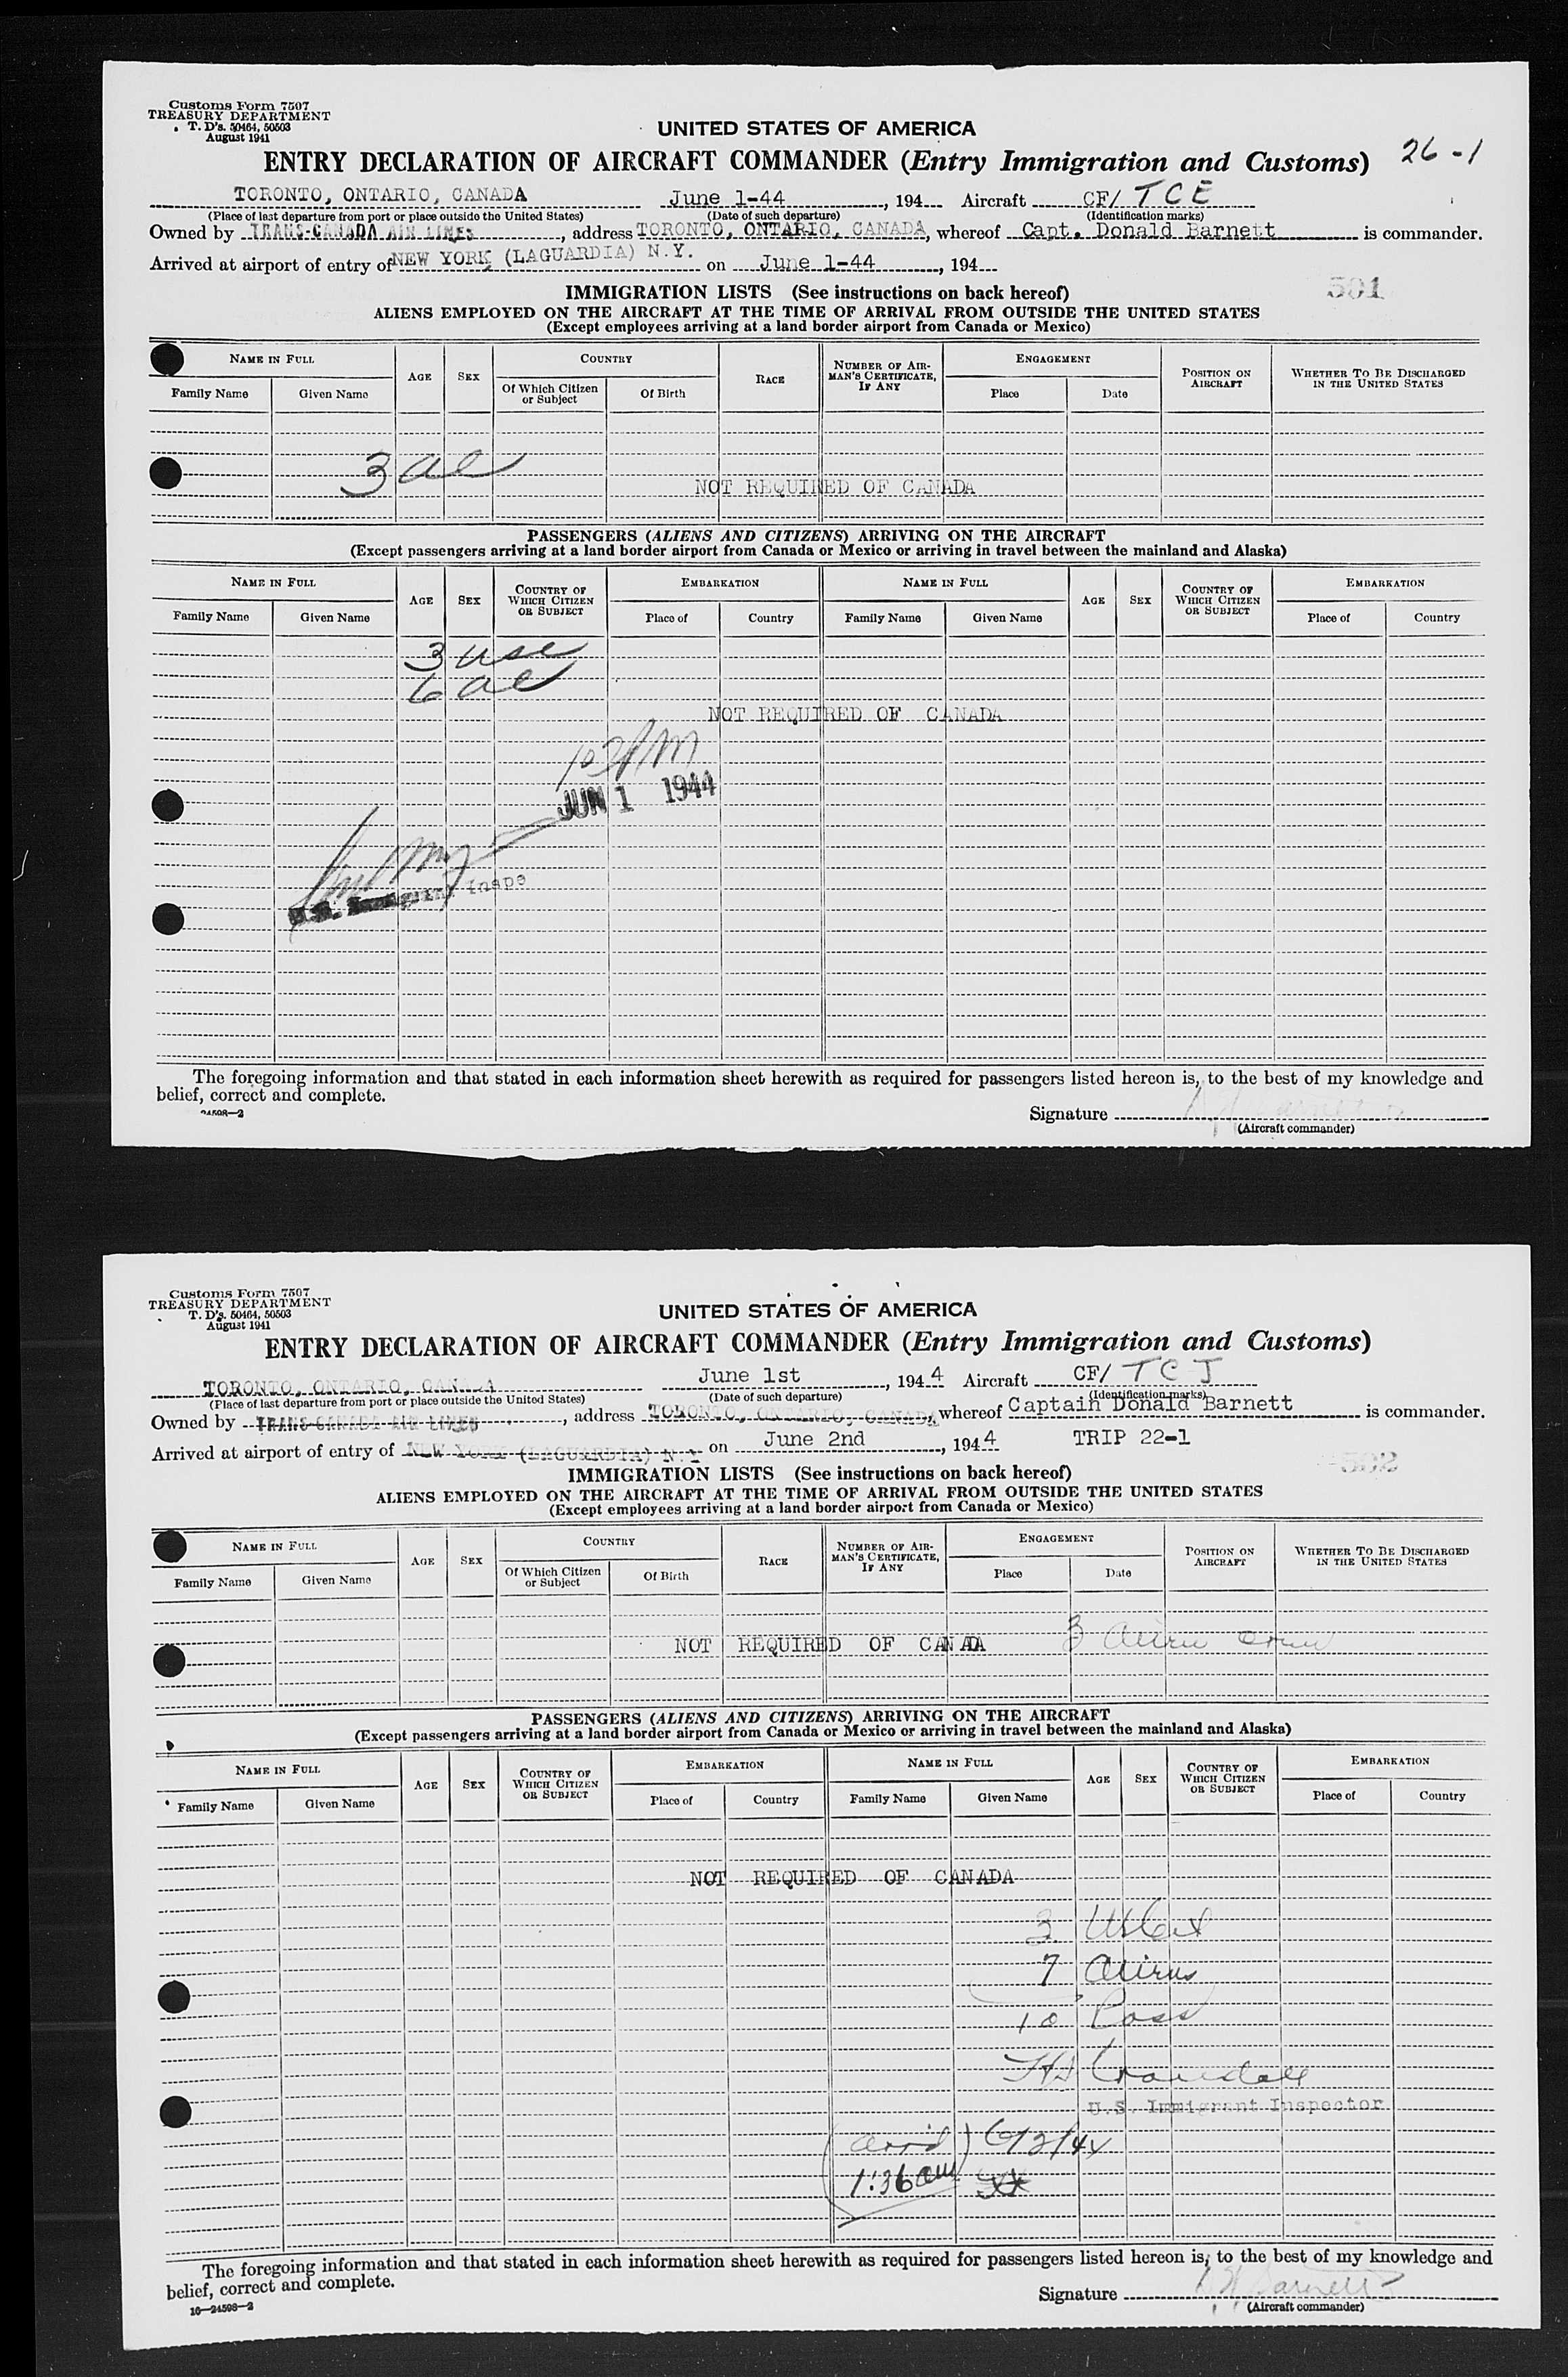 Customs Form 7507
TREASURY DEPARTMENT
T. D's. 50464, 50503
August 1941
UNITED STATES OF AMERICA
ENTRY DECLARATION OF AIRCRAFT COMMANDER (Entry Immigration and Customs) 26-1
TORONTO, ONTARIO, CANADA June 1-44, 194 Aircraft CF/ TCE
(Place of last departure from port or place outside the United States) (Date of such departure) (Identification marks)
Owned by TRANS-CANADA AIR LINES, address TORONTO, ONTARIO, CANADA, whereof Capt. Donald Barnett is commander.
Arrived at airport of entry of NEW YORK (LAGUARDIA) N.Y. on June 1-44, 194
501
IMMIGRATION LISTS (See instructions on back hereof)
ALIENS EMPLOYED ON THE AIRCRAFT AT THE TIME OF ARRIVAL FROM OUTSIDE THE UNITED STATES
(Except employees arriving at a land border airport from Canada or Mexico)
NAME IN FULL AGE SEX COUNTRY RACE NUMBER OF AIRMAN'S CERTIFICATE, IF ANY ENGAGEMENT POSITION ON AIRCRAFT WHETHER TO BE DISCHARGED IN THE UNITED STATES
Family Name Given Name Of Which Citizen or Subject Of Birth Place Date
3 al
NOT REQUIRED OF CANADA
PASSENGERS (ALIENS AND CITIZENS) ARRIVING ON THE AIRCRAFT
(Except passengers arriving at a land border airport from Canada or Mexico or arriving in travel between the mainland and Alaska)
NAME IN FULL AGE SEX COUNTRY OF WHICH CITIZEN OR SUBJECT EMBARKATION NAME IN FULL AGE SEX COUNTRY OF WHICH CITIZEN OR SUBJECT EMBARKATION
Family Name Given Name Place of Country Family Name Given Name Place of Country
3 usc
6 al
NOT REQUIRED OF CANADA
JUN 1 1944
U.S. Immigrant Inspe
The foregoing information and that stated in each information sheet herewith as required for passengers listed hereon is, to the best of my knowledge and
belief, correct and complete.
24598—2
Signature Barnett
(Aircraft commander)
Customs Form 7507
TREASURY DEPARTMENT
T. D's. 50464, 50503
August 1941
UNITED STATES OF AMERICA
ENTRY DECLARATION OF AIRCRAFT COMMANDER (Entry Immigration and Customs)
TORONTO, ONTARIO, CANADA June 1st, 194 4 Aircraft CF/ TCJ
(Place of last departure from port or place outside the United States) (Date of such departure) (Identification marks)
Owned by TRANS-CANADA AIR LINES, address TORONTO, ONTARIO, CANADA, whereof Captain Donald Barnett is commander.
Arrived at airport of entry of NEW YORK (LAGUARDIA) N.Y on June 2nd, 194 4 TRIP 22-1
IMMIGRATION LISTS (See instructions on back hereof)
ALIENS EMPLOYED ON THE AIRCRAFT AT THE TIME OF ARRIVAL FROM OUTSIDE THE UNITED STATES
(Except employees arriving at a land border airport from Canada or Mexico)
NAME IN FULL AGE SEX COUNTRY RACE NUMBER OF AIRMAN'S CERTIFICATE, IF ANY ENGAGEMENT POSITION ON AIRCRAFT WHETHER TO BE DISCHARGED IN THE UNITED STATES
Family Name Given Name Of Which Citizen or Subject Of Birth Place Date
NOT REQUIRED OF CANADA 3 Alien crew
PASSENGERS (ALIENS AND CITIZENS) ARRIVING ON THE AIRCRAFT
(Except passengers arriving at a land border airport from Canada or Mexico or arriving in travel between the mainland and Alaska)
NAME IN FULL AGE SEX COUNTRY OF WHICH CITIZEN OR SUBJECT EMBARKATION NAME IN FULL AGE SEX COUNTRY OF WHICH CITIZEN OR SUBJECT EMBARKATION
Family Name Given Name Place of Country Family Name Given Name Place of Country
NOT REQUIRED OF CANADA
3 US Cit
7 Aliens
10 Pass
U.S. Immigrant Inspector
(arrd) 6/2/44
1:36 am
The foregoing information and that stated in each information sheet herewith as required for passengers listed hereon is, to the best of my knowledge and
belief, correct and complete.
16—24598—2
Signature Barnett
(Aircraft commander)